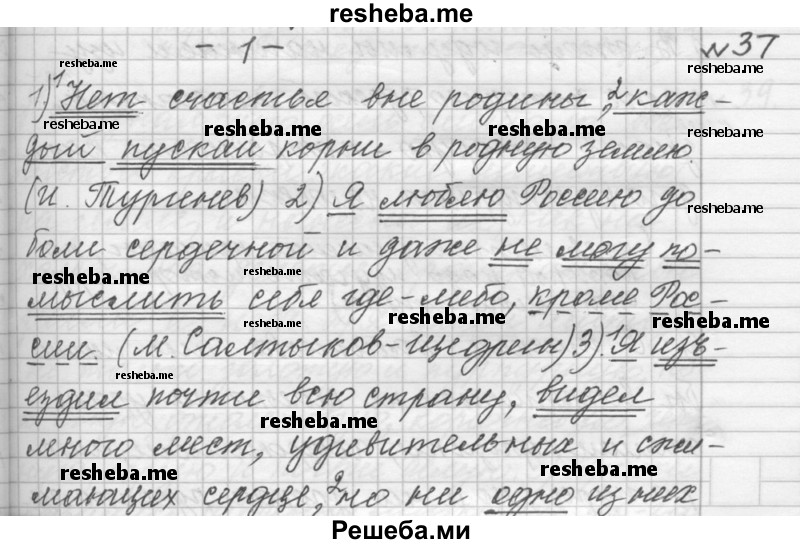 resheba.me
- 1 -
№ 37
1) ¹Нет счастья вне родины, ²каж-
дый пускай корни в родную землю.
(И. Тургенев) 2) Я люблю Россию до
боли сердечной и даже не могу по-
мыслить себя где-либо, кроме Рос-
сии. (М. Салтыков-Щедрин) 3) ¹Я изъ-
ездил почти всю страну, видел
много мест, удивительных и сжи-
мающих сердце, ²но ни одно из них
resheba.me
resheba.me
resheba.me
resheba.me
resheba.me
resheba.me
resheba.me
resheba.me
resheba.me
resheba.me
resheba.me
resheba.me
resheba.me
resheba.me
Решеба.ми